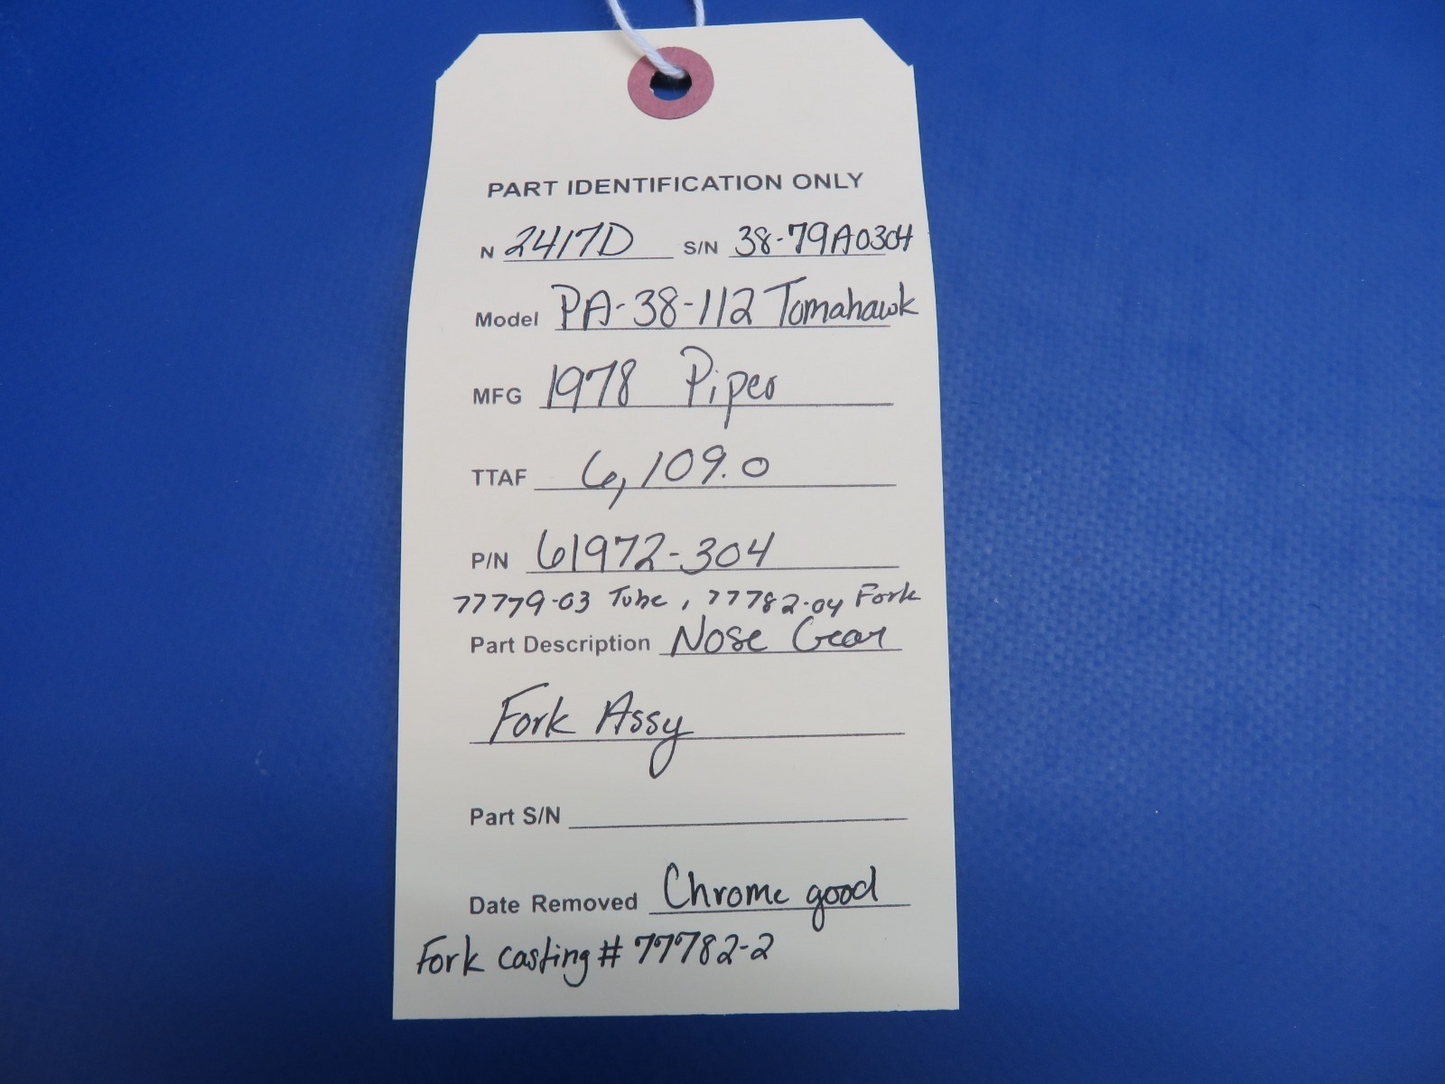 PART IDENTIFICATION ONLY
N 2417D S/N 38-79A0304
Model PA-38-112 Tomahawk
MFG 1978 Piper
TTAF 6,109.0
P/N 61972-304
77779-03 Tube, 77782-04 Fork
Part Description Nose Gear
Fork Assy
Part S/N
Date Removed Chrome good
Fork casting # 77782-2